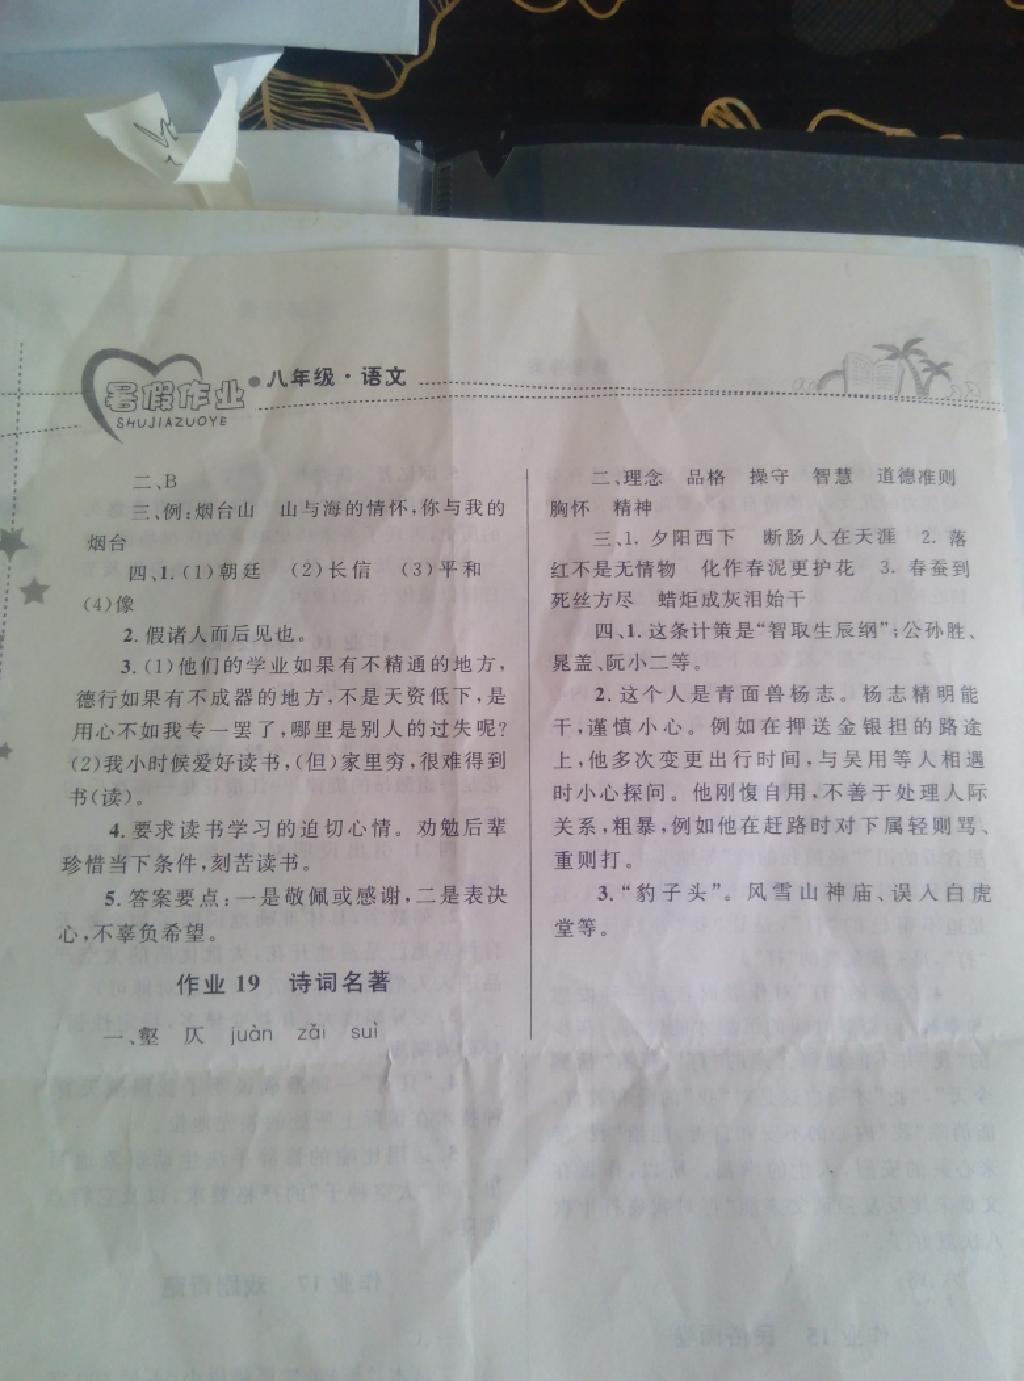 暑假作业
SHUJIAZUOYE
八年级·语文
二、B
三、例:烟台山　山与海的情怀,你与我的
烟台
四、1.(1)朝廷　(2)长信　(3)平和
(4)像
2. 假诸人而后见也。
3.(1)他们的学业如果有不精通的地方,
德行如果有不成器的地方,不是天资低下,是
用心不如我专一罢了,哪里是别人的过失呢?
(2)我小时候爱好读书,(但)家里穷,很难得到
书(读)。
4. 要求读书学习的迫切心情。劝勉后辈
珍惜当下条件,刻苦读书。
5. 答案要点:一是敬佩或感谢,二是表决
心,不辜负希望。
作业 19　诗词名著
一、壑　仄　juàn　zǎi　suì
二、理念　品格　操守　智慧　道德准则
胸怀　精神
三、1. 夕阳西下　断肠人在天涯　2. 落
红不是无情物　化作春泥更护花　3. 春蚕到
死丝方尽　蜡炬成灰泪始干
四、1. 这条计策是“智取生辰纲”;公孙胜、
晁盖、阮小二等。
2. 这个人是青面兽杨志。杨志精明能
干,谨慎小心。例如在押送金银担的路途
上,他多次变更出行时间,与吴用等人相遇
时小心探问。他刚愎自用,不善于处理人际
关系,粗暴,例如他在赶路时对下属轻则骂、
重则打。
3.“豹子头”。风雪山神庙、误入白虎
堂等。